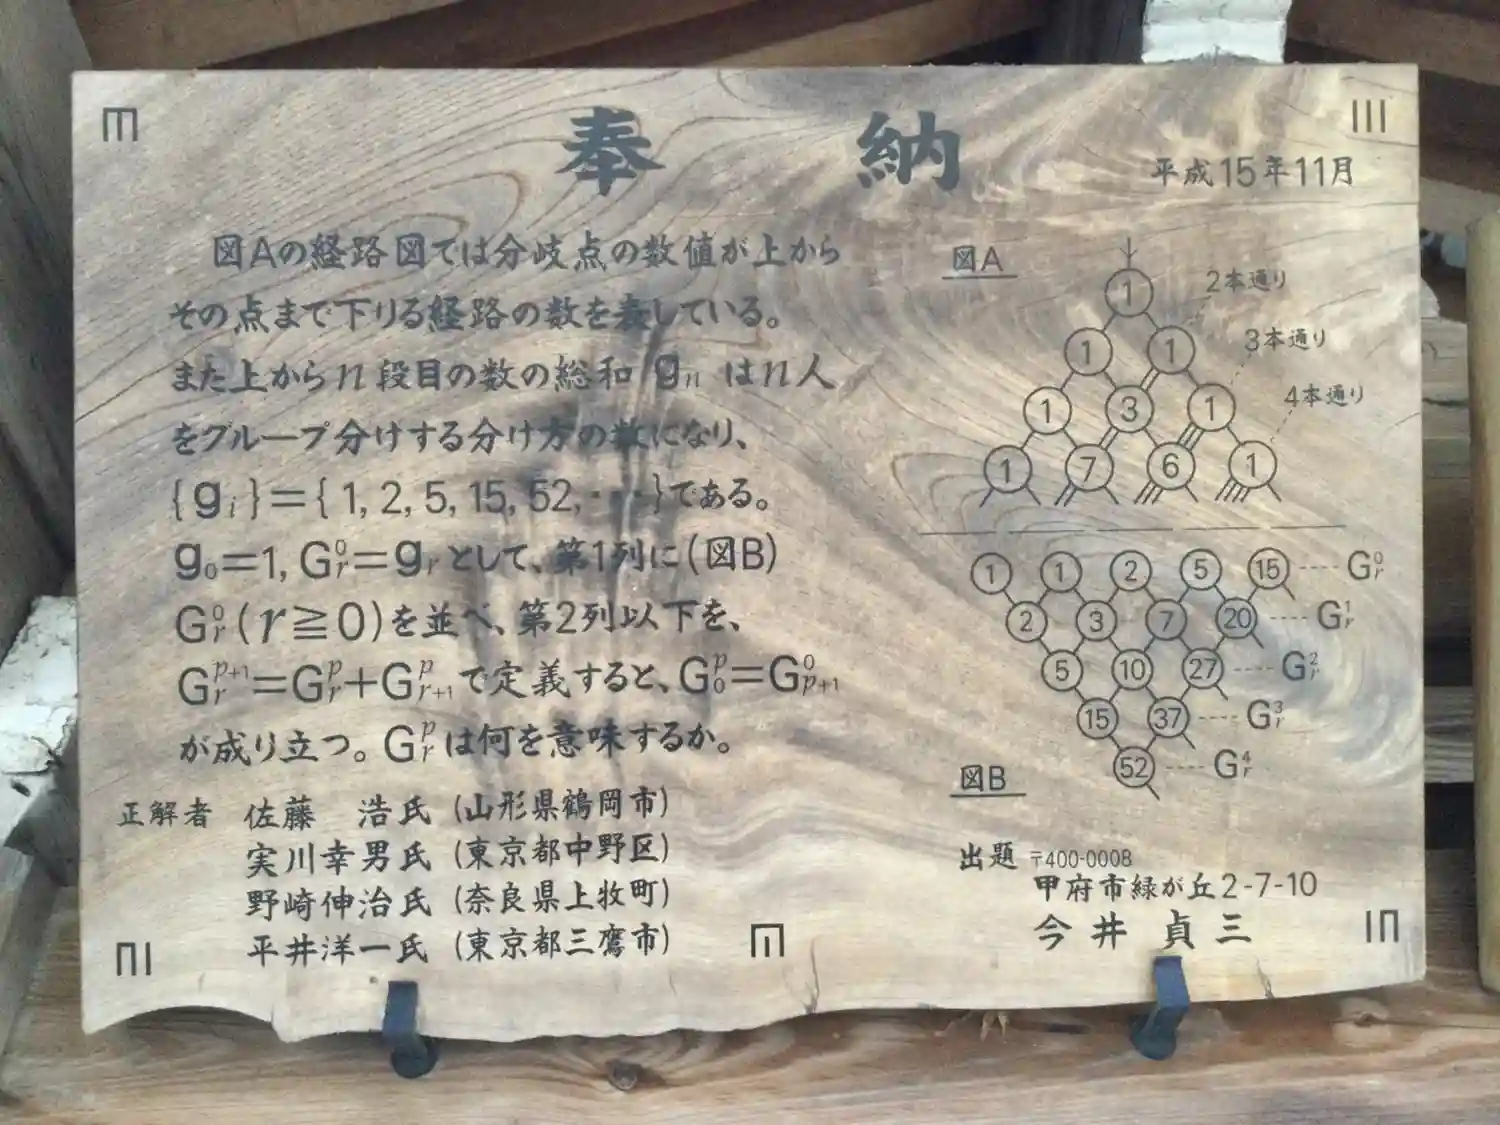 奉納
平成15年11月
図Aの経路図では分岐点の数値が上から
その点まで下りる経路の数を表している。
また上からn段目の数の総和 gₙ はn人
をグループ分けする分け方の数になり、
{gᵢ}={1, 2, 5, 15, 52, ・・・}である。
g₀=1, G⁰ᵣ=gᵣ として、第1列に(図B)
G⁰ᵣ(r≧0)を並べ、第2列以下を、
Gᵖ⁺¹ᵣ=Gᵖᵣ+Gᵖᵣ₊₁で定義すると、Gᵖ₀=G⁰ₚ₊₁
が成り立つ。Gᵖᵣは何を意味するか。
正解者 佐藤 浩氏 (山形県鶴岡市)
実川幸男氏 (東京都中野区)
野崎伸治氏 (奈良県上牧町)
平井洋一氏 (東京都三鷹市)
図A
1
2本通り
1 1
3本通り
1 3 1
4本通り
1 7 6 1
1 1 2 5 15 G⁰ᵣ
2 3 7 20 G¹ᵣ
5 10 27 G²ᵣ
15 37 G³ᵣ
52 G⁴ᵣ
図B
出題 〒400-0008
甲府市緑が丘2-7-10
今井 貞三